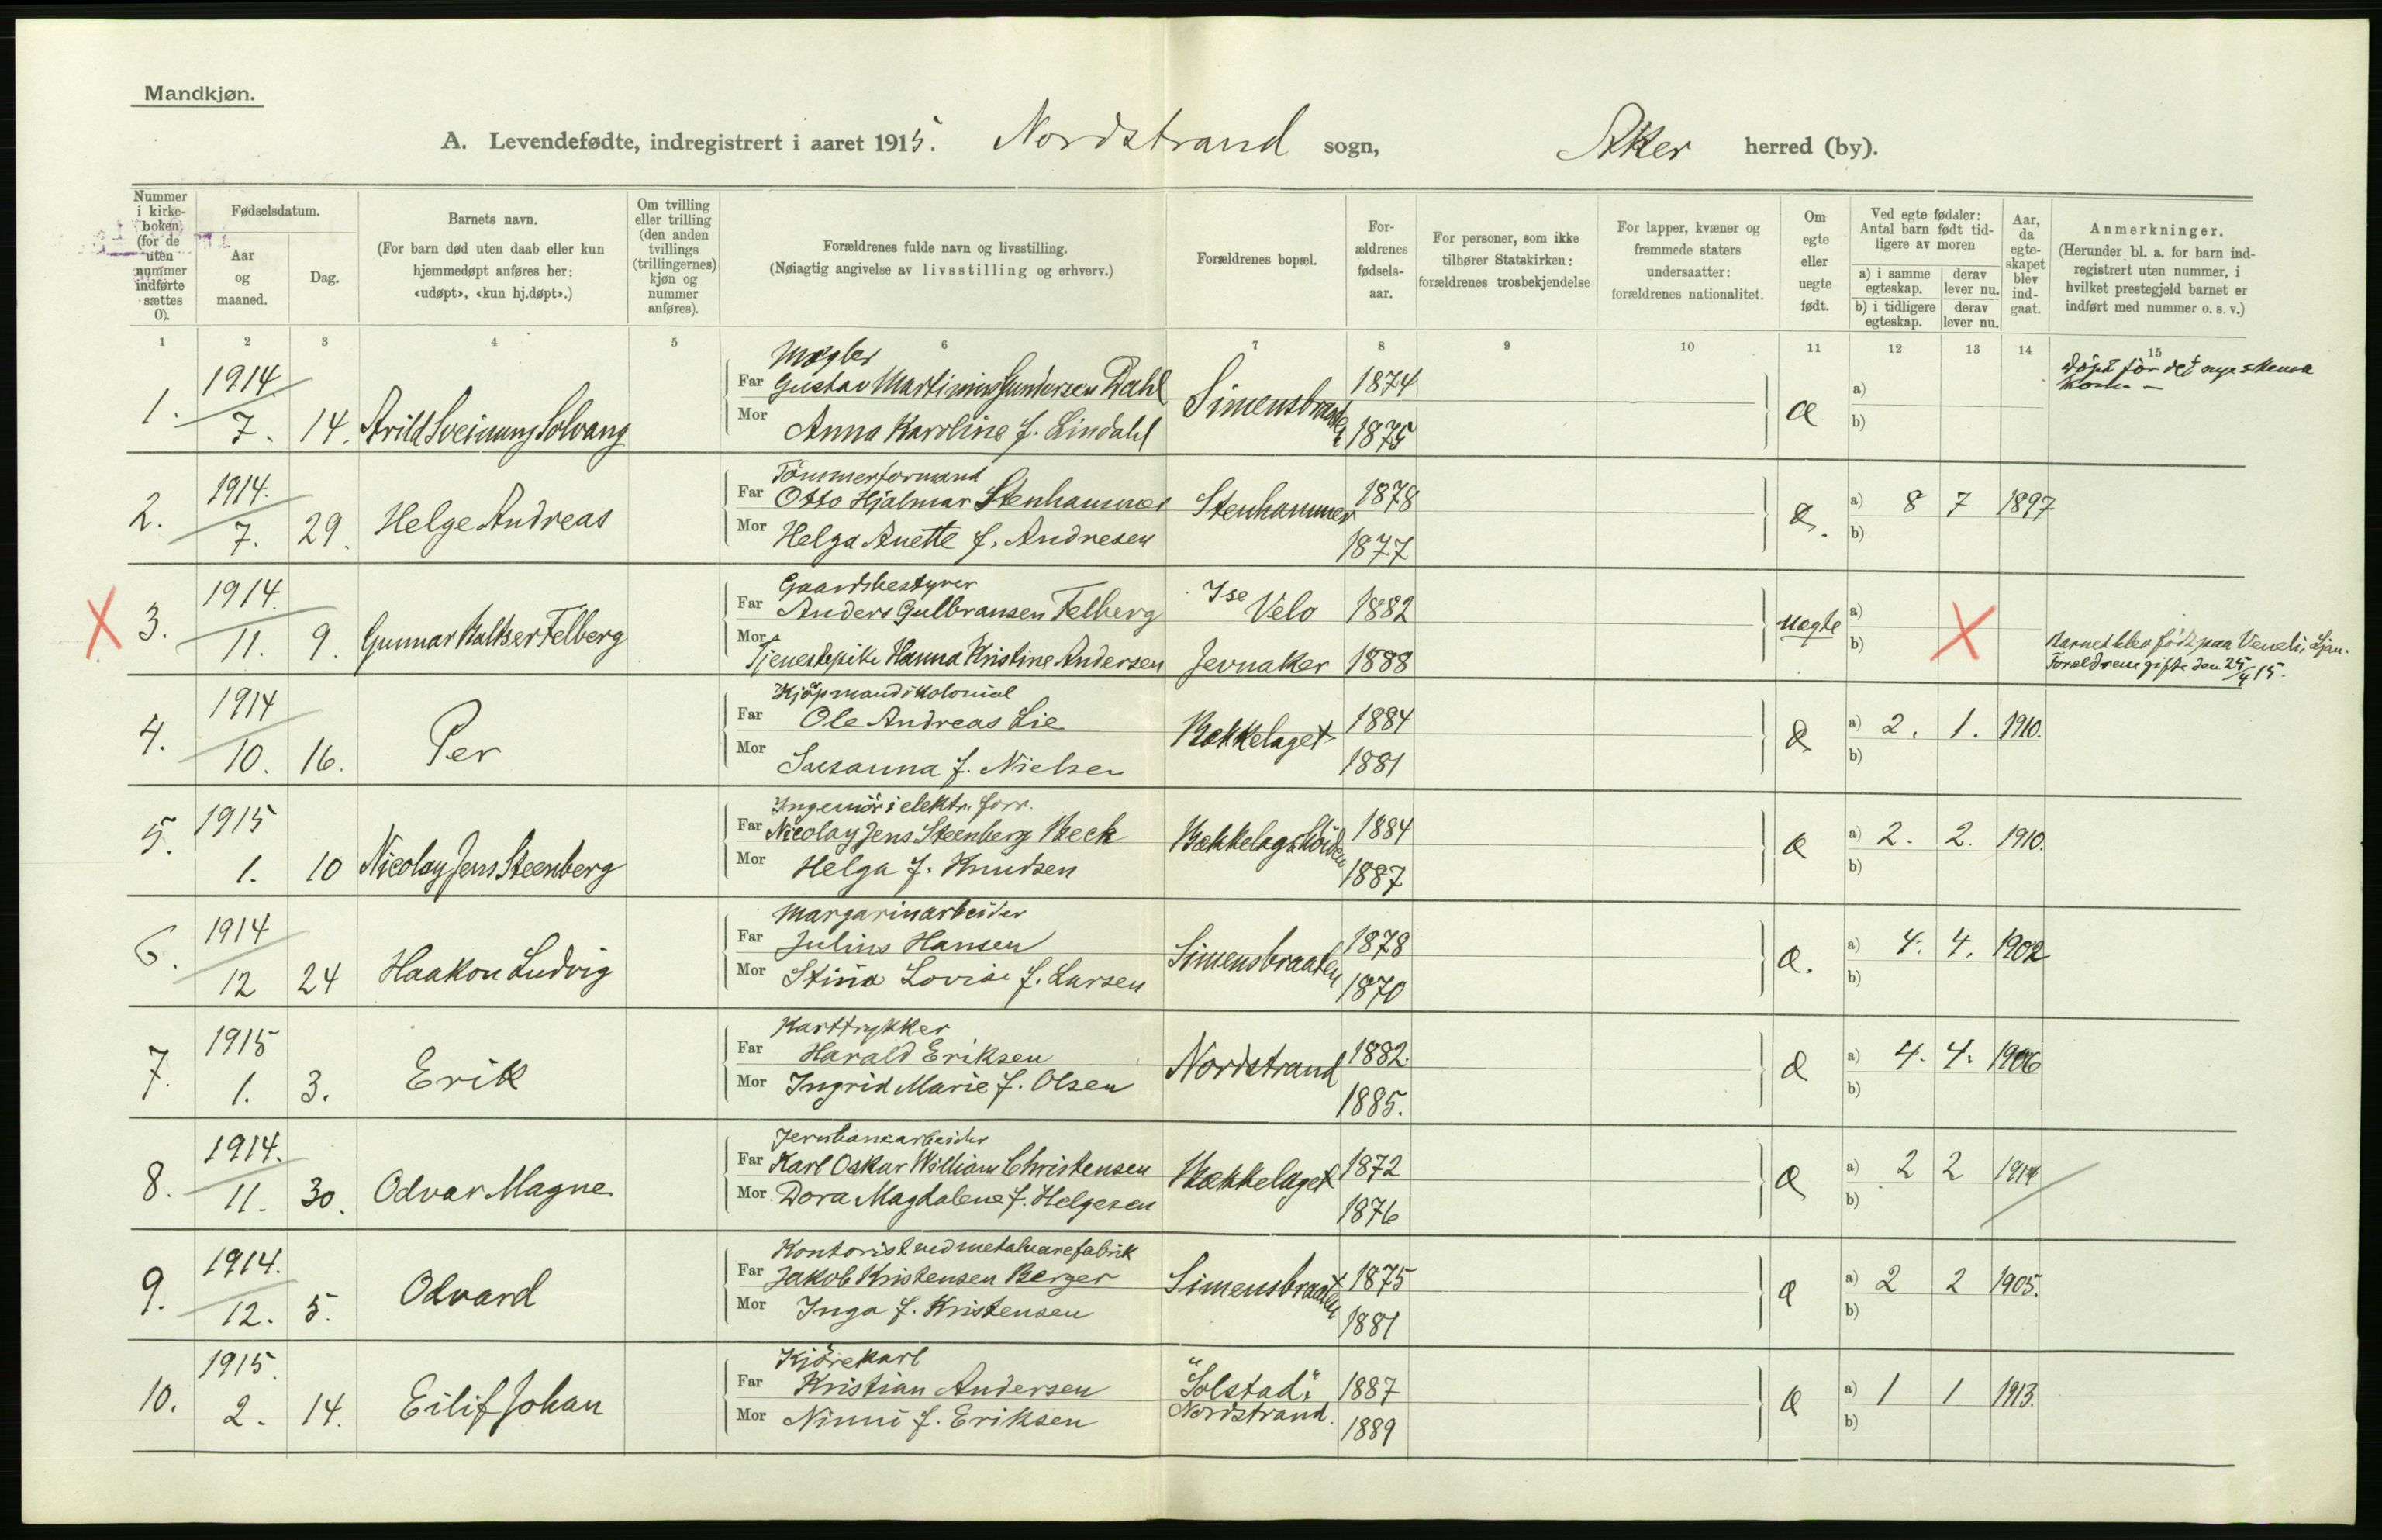 Mandkjøn.
A. Levendefødte, indregistrert i aaret 1915. Nordstrand sogn, Aker herred (by).
Nummer i kirke-boken (for de uten nummer indførte sættes 0).
Fødselsdatum.
Aar og maaned.
Dag.
Barnets navn.
(For barn død uten daab eller kun hjemmedøpt anføres her: «udøpt», «kun hj.døpt».)
Om tvilling eller trilling (den anden tvillings (trillingernes) kjøn og nummer anføres).
Forældrenes fulde navn og livsstilling.
(Nøiagtig angivelse av livsstilling og erhverv.)
Forældrenes bopæl.
For-ældrenes fødsels-aar.
For personer, som ikke tilhører Statskirken: forældrenes trosbekjendelse
For lapper, kvæner og fremmede staters undersaatter: forældrenes nationalitet.
Om egte eller uegte født.
Ved egte fødsler: Antal barn født tid-ligere av moren
a) i samme egteskap. derav lever nu.
b) i tidligere egteskap. derav lever nu.
Aar, da egte-skapet blev ind-gaat.
Anmerkninger.
(Herunder bl. a. for barn ind-registrert uten nummer, i hvilket prestegjeld barnet er indført med nummer o. s. v.)
1 2 3 4 5 6 7 8 9 10 11 12 13 14 15
1. 1914 7. 14. Arild Sveinung Solvang
Mægler
Far Gustav Martinius Gundersen Dahl Simensbraaten 1874
Mor Anna Karoline f. Lindahl 1875
a) b)
Døpt før det nye skema kom.
2. 1914. 7. 29. Helge Andreas
Tömmerformand
Far Otto Hjalmar Stenhammer Stenhammer 1878
Mor Helga Anette f. Andresen 1877
a) 8 7 1897
b)
X 3. 1914. 11. 9. Gunnar Baltser Felberg
Gaardsbestyrer
Far Anders Gulbransen Felberg Velo 1882
Mor Tjenestepike Hanna Kristine Andersen Jevnaker 1888
uegte a) b) X
Barnet blev født paa Ljan.
Forældrene gifte den 25/4 15.
4. 1914 10. 16. Per
Kjøpmand i kolonial
Far Ole Andreas Lie Bækkelaget 1884
Mor Susanna f. Nielsen 1881
a) 2. 1. 1910.
b)
5. 1915 1. 10 Nicolay Jens Steenberg
Ingeniör i elektr. forr.
Far Nicolay Jens Steenberg Beck Bækkelagshöiden 1884
Mor Helga f. Knudsen 1887
a) 2. 2. 1910.
b)
6. 1914 12 24 Haakon Ludvig
Margarinarbeider
Far Julius Hansen Simensbraaten 1878
Mor Stina Lovise f. Larsen 1870
a) 4. 4. 1902
b)
7. 1915 1. 3. Erik
Karttrykker
Far Harald Eriksen Nordstrand 1882.
Mor Ingrid Marie f. Olsen 1885.
a) 4. 4. 1906
b)
8. 1914. 11. 30. Odvar Magne
Jernbanearbeider
Far Karl Oskar William Christensen Bækkelaget 1872
Mor Dora Magdalene f. Helgesen 1876
a) 2 2 1914
b)
9. 1914. 12. 5. Odvard
Kontorist ved metalvarefabrik
Far Jakob Kristensen Berger Simensbraaten 1875
Mor Inga f. Kristensen 1881
a) 2 2 1905.
b)
10. 1915. 2. 14. Eilif Johan
Kjörekarl
Far Kristian Andersen "Solstad" 1887
Mor Ninni f. Eriksen Nordstrand. 1889
a) 1 1 1913.
b)